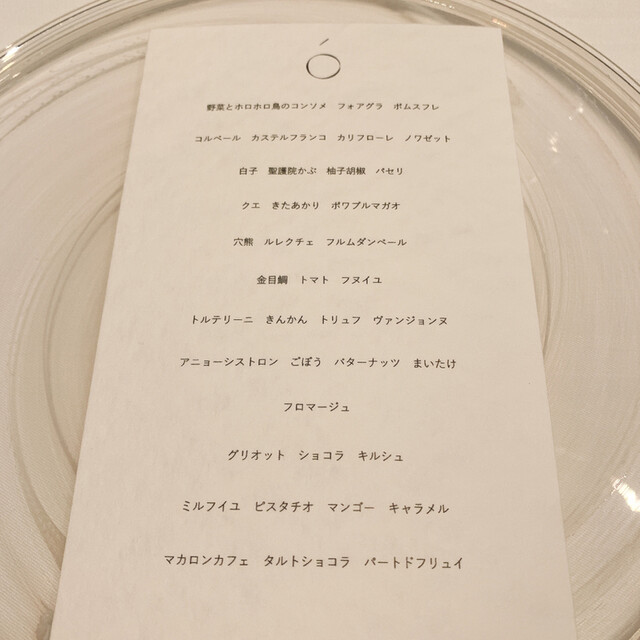 Ó
野菜とホロホロ鳥のコンソメ　フォアグラ　ポムスフレ
コルベール　カステルフランコ　カリフローレ　ノワゼット
白子　聖護院かぶ　柚子胡椒　パセリ
クエ　きたあかり　ポワブルマガオ
穴熊　ルレクチェ　フルムダンベール
金目鯛　トマト　フヌイユ
トルテリーニ　きんかん　トリュフ　ヴァンジョンヌ
アニョーシストロン　ごぼう　バターナッツ　まいたけ
フロマージュ
グリオット　ショコラ　キルシュ
ミルフイユ　ピスタチオ　マンゴー　キャラメル
マカロンカフェ　タルトショコラ　パートドフリュイ